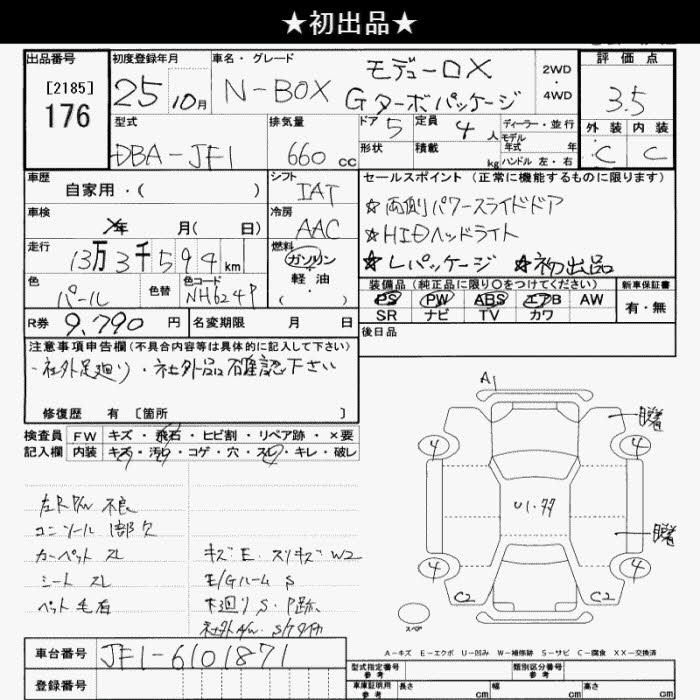 ★初出品★
出品番号
[2185]
176
初度登録年月
25 10月
車名・グレード
N-BOX
モデューロX
Gターボパッケージ
2WD
・
4WD
評価点
3.5
外装 内装
C C
型式
DBA-JF1
排気量
660 cc
ドア 5
定員 4人
形状
積載 kg
ディーラー・並行
モデル年式 年
ハンドル 左・右
車歴
自家用・( )
シフト
IAT
セールスポイント (正常に機能するものに限ります)
☆両側パワースライドドア
☆HIDヘッドライト
☆Lパッケージ ☆初出品
車検
年 月( 日)
冷房
AAC
走行
13万3千594km
燃料
ガソリン
・
軽油
( )
色
パール
色替
色コード
NH624P
装備品(純正品に限り○をつけてください)
PS PW ABS エアB AW
SR ナビ TV カワ
新車保証書
有・無
R券 9,790円
名変期限 月 日
後日品
注意事項申告欄(不具合内容等は具体的に記入して下さい)
・社外足廻り・社外品確認下さい
修復歴 有 [箇所 ]
検査員記入欄
FW キズ・飛石・ヒビ割・リペア跡・×要
内装 キズ・汚れ・コゲ・穴・スレ・キレ・破レ
不良
コンソール 1部欠
カーペット スレ
シート スレ
ペット毛有
キズE. スリキズW2
E/Gルーム S
下廻り S・P跡.
A1
4 4
4 4
C2 C2
U1.
スペア
A-キズ E-エクボ U-凹み W-補修跡 S-サビ C-腐食 XX-交換済
車台番号 JF1-6101871
登録番号
型式指定番号
参考
類別区分番号
参考
車庫証明用
参考
長さ cm
幅 cm
高さ cm